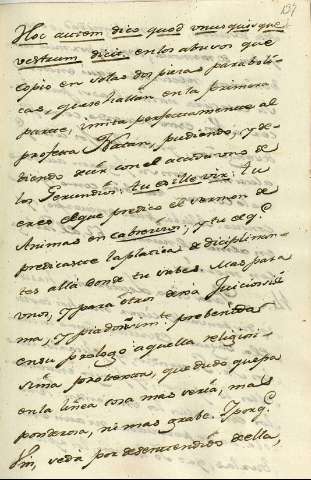 137
Hoc autem dico quod unusquisque
vestrum dicit. en los abusos que
copio en solas dos piezas paraboli-
cas, que se hallan en la primera
parte, imita perfectamente al
profeta Natan, pudiendo, y de-
diendo decir con el a cada uno de
los Gerundios: tu es ille vir: tu
eres el que predicó el sermon de
Animas en Cabrerizos; y tu el q.^e
predicaste la platica de disciplinan-
tes alla donde tu sabes. Mas para
unos, y para otros dexa Juiciosisi
ma, y piadosisim.^te prebenida
en su prologo aquella religiosi-
sima protesta, que dudo quepa
en la linea cosa mas seria, mas
ponderosa, ni mas grabe. Y porq.^e
Fin, se da por desentendido de ella,